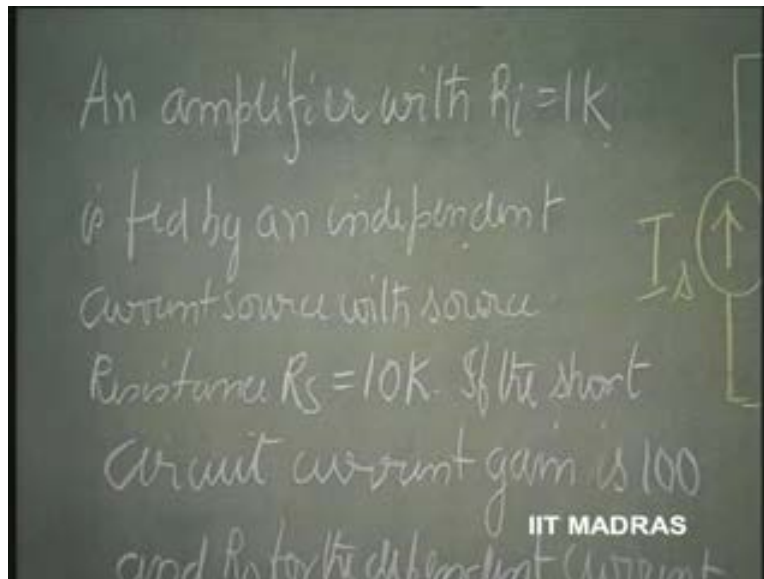 An amplifier with Ri = 1K
is fed by an independent
current source with source
Resistance Rs = 10K. If the short
circuit current gain is 100
and Ro for the dependent current
Is
IIT MADRAS